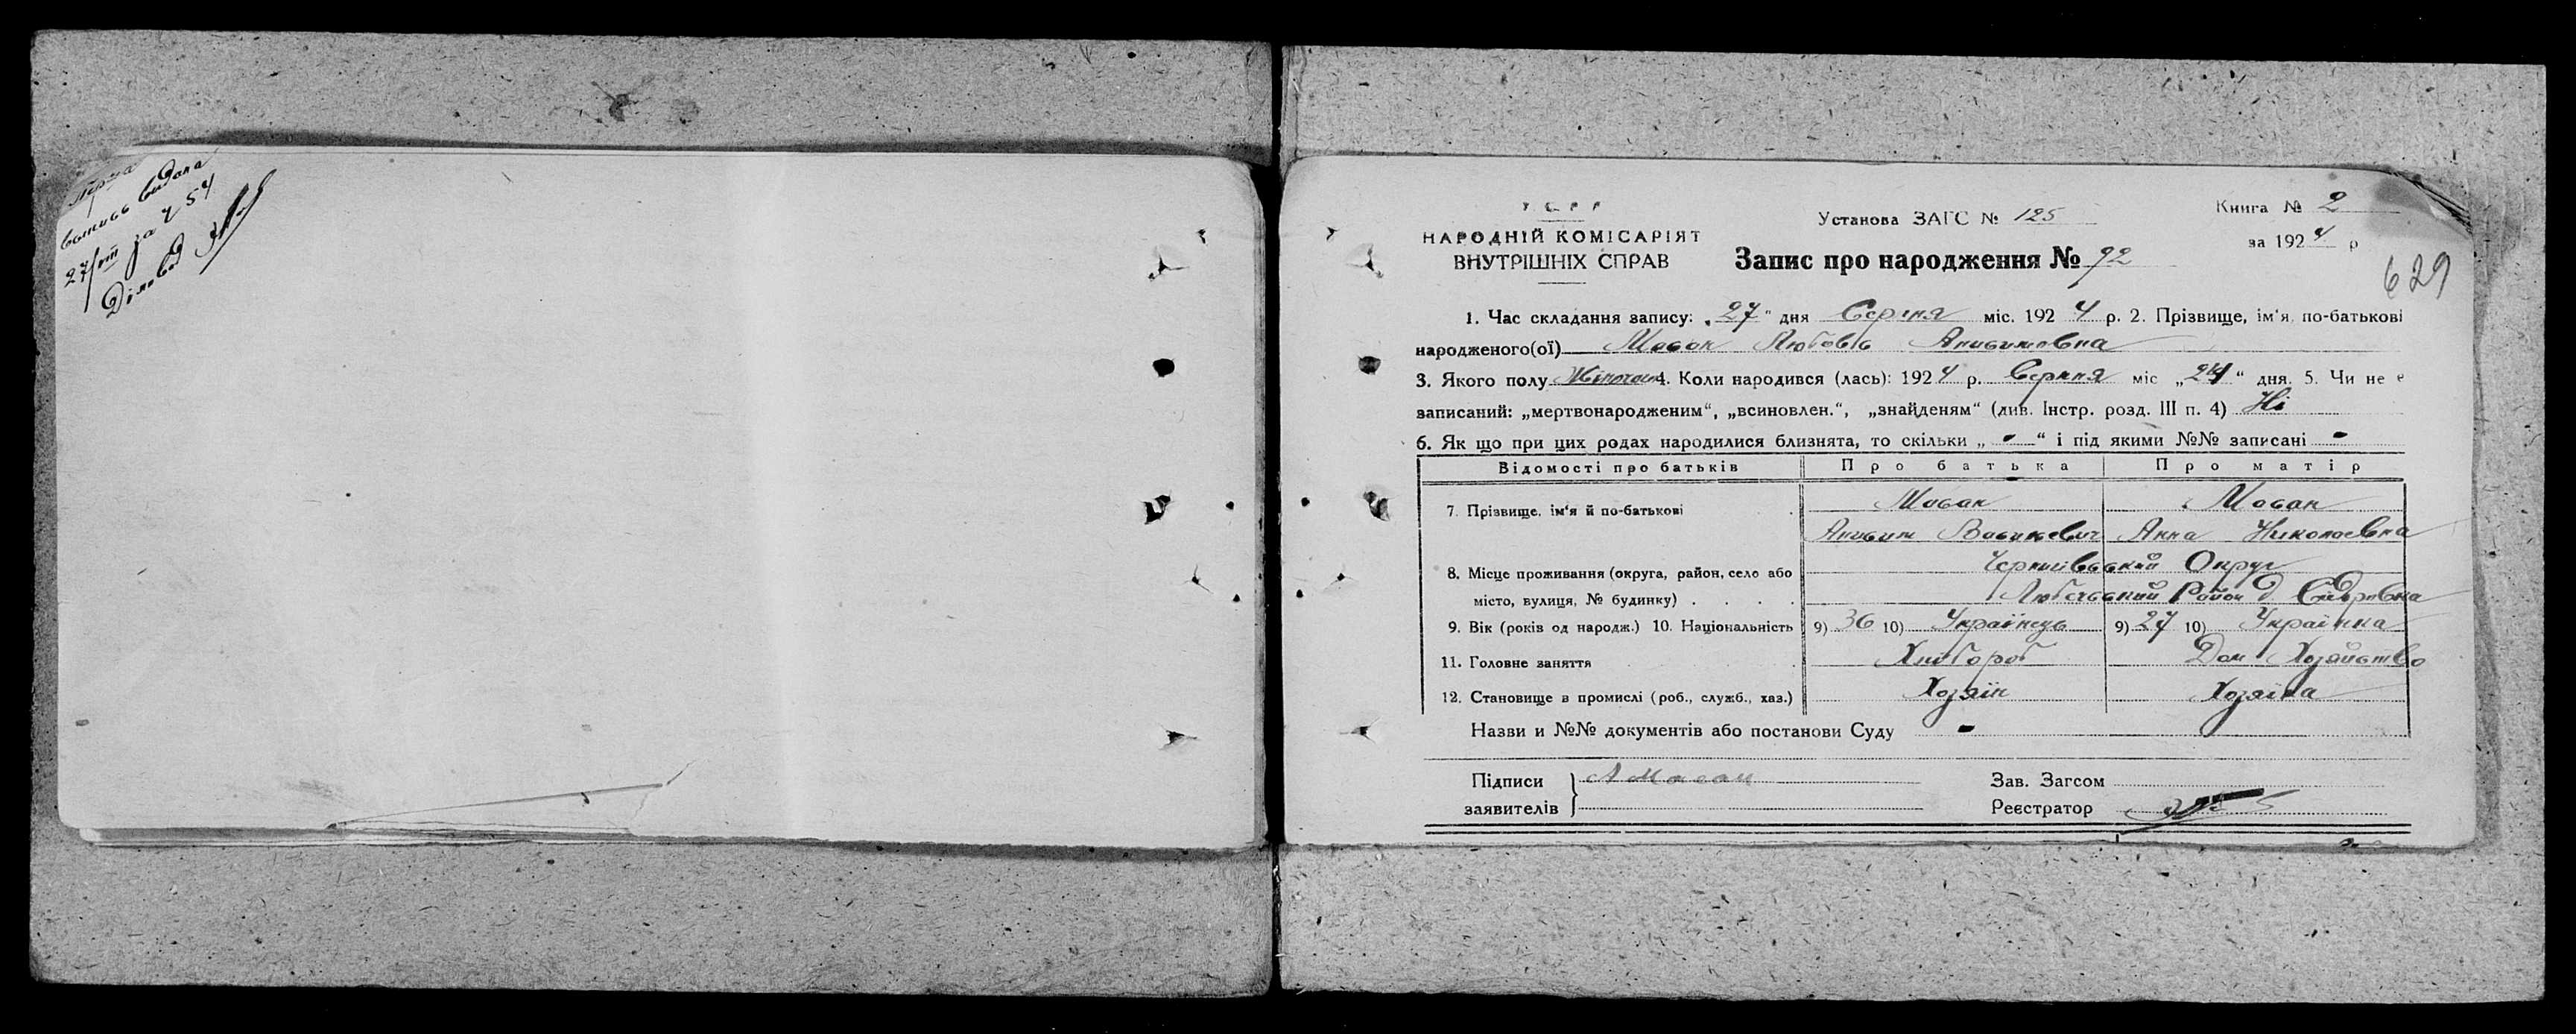 Перша
випись видана
27/VIII за № 54
Діловод
У С Р Р
НАРОДНІЙ КОМІСАРІЯТ
ВНУТРІШНІХ СПРАВ
Установа ЗАГС № 125
Книга № 2
за 1924 р
Запис про народження № 92
629
1. Час складання запису: „27" дня Серпня міс. 1924 р. 2. Прізвище, ім'я, по-батькові
народженого(ої) Мосол Любовь
3. Якого полу Жіночого 4. Коли народився (лась): 1924 р. Серпня міс „24" дня. 5. Чи не є
записаний: „мертвонародженим", „всиновлен.", „знайденям" (див. Інстр. розд. III п. 4) Ні
6. Як що при цих родах народилися близнята, то скільки „-" і під якими №№ записані -
Відомості про батьків Про батька Про матір
7. Прізвище, ім'я й по-батькові
Анна Николаевна
8. Місце проживання (округа, район, село або Чернигівський Округ
місто, вулиця, № будинку) . . . . Любечський Район
9. Вік (років од народж.) 10. Національність 9) 36 10) Українець 9) 27 10) Українка
11. Головне заняття Хлібороб Дом Хозяйство
12. Становище в промислі (роб., служб., хаз.) Хозяїн Хозяїка
Назви и №№ документів або постанови Суду -
Підписи
заявителів
Зав. Загсом
Реєстратор